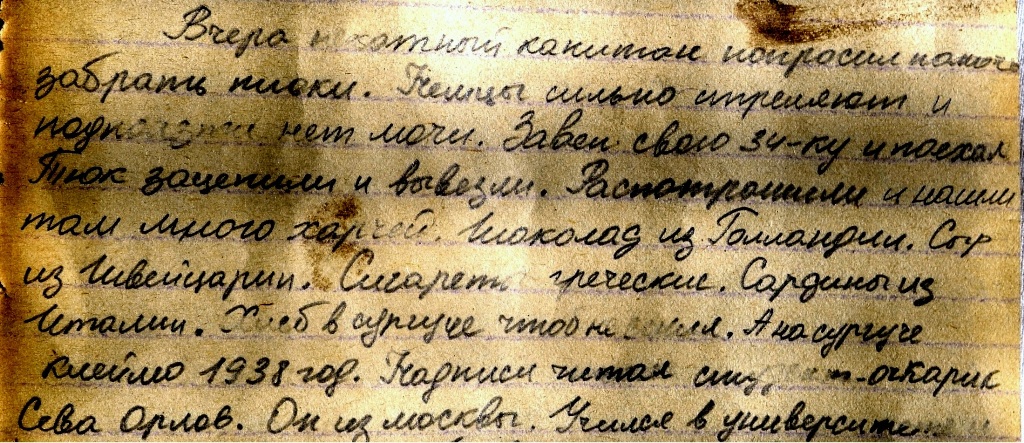 Вчера пехотный капитан попросил помочь
забрать тюки. Немцы сильно стреляют и
подползти нет мочи. Завел свою 34-ку и поехал
Тюк зацепили и вывезли. Распотрошили и нашли
там много харчей. Шоколад из Голландии. Сыр
из Швейцарии. Сигареты греческие. Сардины из
Италии. Хлеб в сургуче чтоб не
А на сургуче
клеймо 1938 год. Надписи читал студент-очкарик
Сева Орлов. Он из москвы. Учился в университете